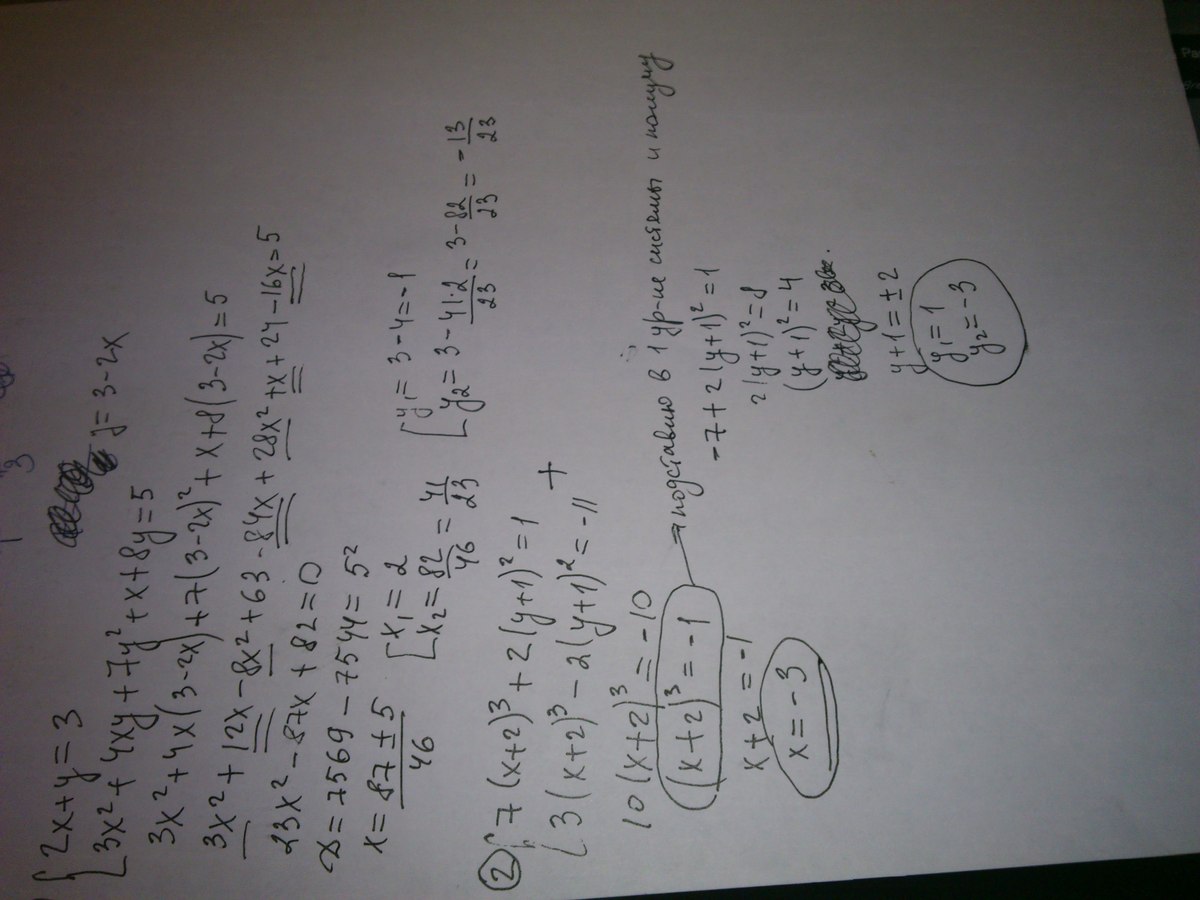 2x+y=3
y=3-2x
3x²+4xy+7y²+x+8y=5
3x²+4x(3-2x)+7(3-2x)²+x+8(3-2x)=5
3x²+12x-8x²+63-84x+28x²+x+24-16x=5
23x²-87x+82=0
D=7569-7544=5²
x=87±5/46
x₁=2
x₂=82/46=41/23
y₁=3-4=-1
y₂=3-41·2/23=3-82/23=-13/23
2
7(x+2)³+2(y+1)²=1
3(x+2)³-2(y+1)²=-11
+
10(x+2)³=-10
(x+2)³=-1 → подставлю в 1 ур-ие системы и получу
x+2=-1
x=-3
-7+2(y+1)²=1
2(y+1)²=8
(y+1)²=4
y+1=±2
y₁=1
y₂=-3